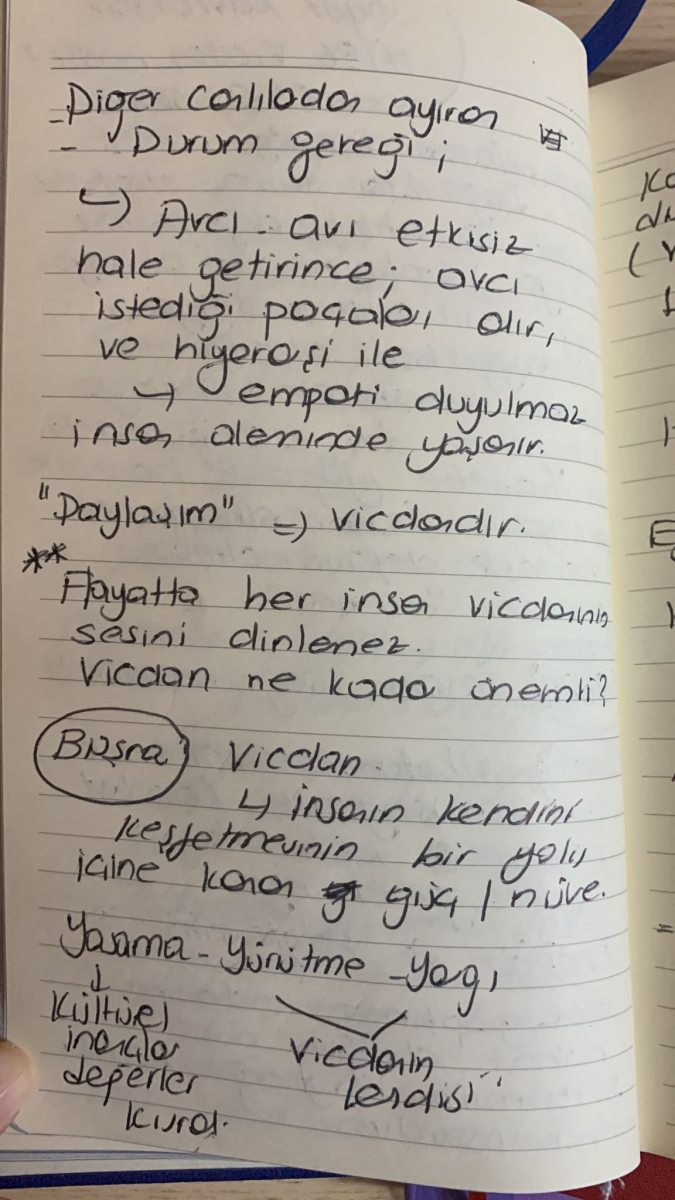 - Diğer canlılardan ayıran
- Durum gereği;
↳ Avcı - avı etkisiz
hale getirince; avcı
istediği poçaları alır,
ve hiyerarşi ile
↳ empati duyulmaz
insan aleminde yaşanır.
"Paylaşım" => vicdandır.
** Hayatta her insan vicdanının
sesini dinlemez.
Vicdan ne kadar önemli?
Büşra Vicdan
↳ insanın kendini
keşfetmesinin bir yolu
içine konan güç / nüve.
Yasama - Yürütme - yargı
↓
Kültürel
inançlar
değerler
kural.
Vicdanın
kendisi
Ka
du
(
E
=